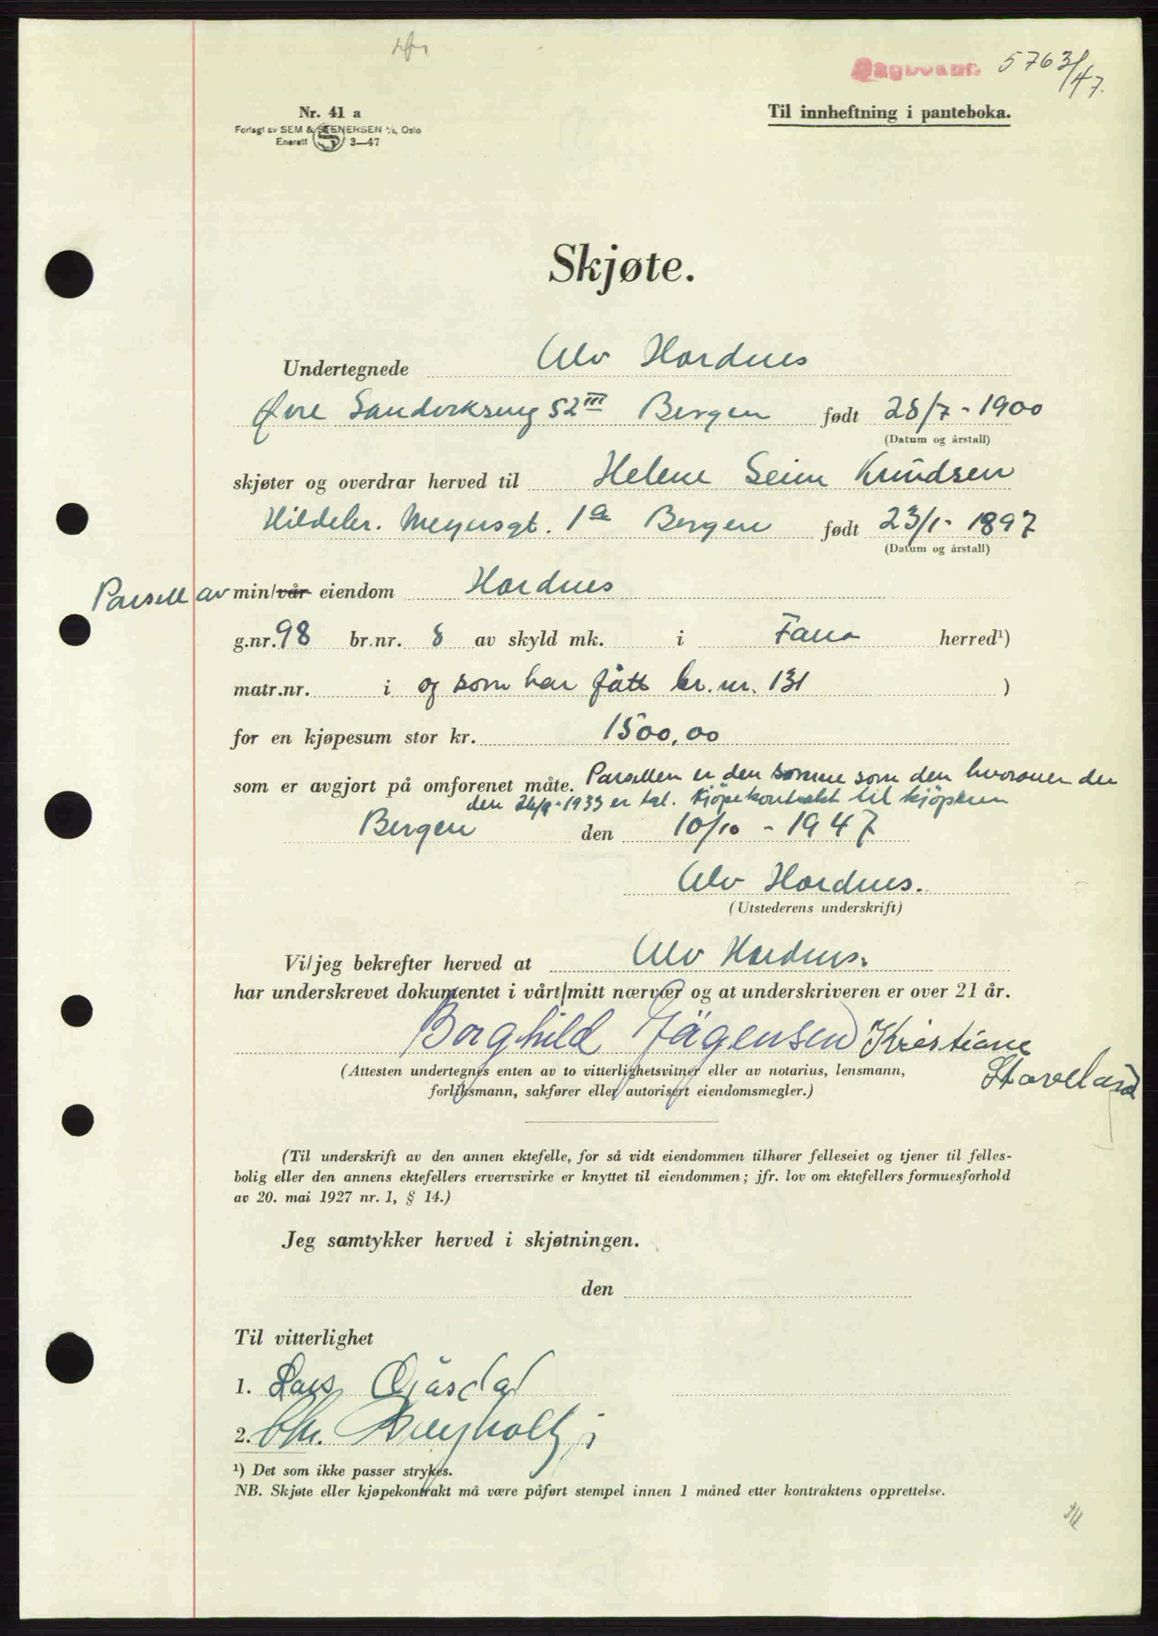 Dagboknr. 5763/47.
Nr. 41 a
Til innheftning i panteboka.
Forlagt av SEM & STENERSEN A/S, Oslo
Enerett 3—47
Skjøte.
Undertegnede Alv Hordnes
Øvre Sandviksveg 52 III Bergen født 28/7-1900
(Datum og årstall)
skjøter og overdrar herved til Helene Seim Knudsen
Hildebr. Meyersgt. 1a Bergen født 23/1-1897
(Datum og årstall)
Parsell av min/vår eiendom Hordnes
g.nr. 98 br.nr. 8 av skyld mk. i Fana herred¹)
matr.nr. i og som har fått br.nr. 131 )
for en kjøpesum stor kr. 1500,00
som er avgjort på omforenet måte. Parsellen er den samme som den hvorover der
den 26/9-1933 er tgl. Kjöpekontrakt til kjöperen
Bergen den 10/10 - 1947
Alv Hordnes.
(Utstederens underskrift)
Vi/jeg bekrefter herved at Alv Hordnes.
har underskrevet dokumentet i vårt/mitt nærvær og at underskriveren er over 21 år.
Borghild Jägensen Kristiane
Staveland
(Attesten undertegnes enten av to vitterlighetsvitner eller av notarius, lensmann,
forliksmann, sakfører eller autorisert eiendomsmegler.)
(Til underskrift av den annen ektefelle, for så vidt eiendommen tilhører felleseiet og tjener til felles-
bolig eller den annens ektefellers ervervsvirke er knyttet til eiendommen; jfr. lov om ektefellers formuesforhold
av 20. mai 1927 nr. 1, § 14.)
Jeg samtykker herved i skjøtningen.
den
Til vitterlighet
1. Lars
2. Chr.
¹) Det som ikke passer strykes.
NB. Skjøte eller kjøpekontrakt må være påført stempel innen 1 måned etter kontraktens opprettelse.